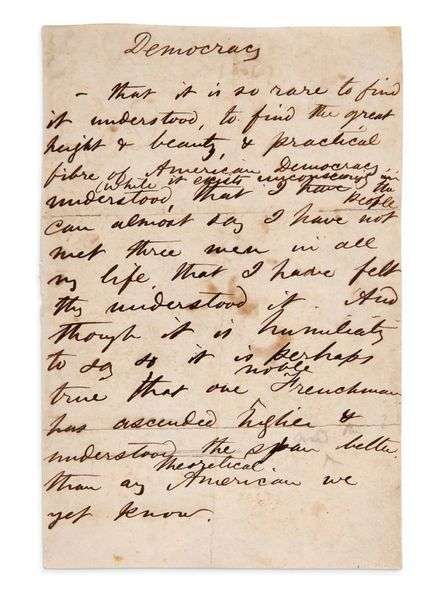 Democracy
— that it is so rare to find
it understood, to find the great
height & beauty, & practical
fibre of American Democracy
(while it exists unconsciously in the People
understood, that I have
can almost say I have not
met three men in all
my life, that I have felt
thy understood it. And
though it is humiliating
to say so it is perhaps
noble
true that one Frenchman
has ascended higher &
understood the span better
theoretical
than any American we
yet know.